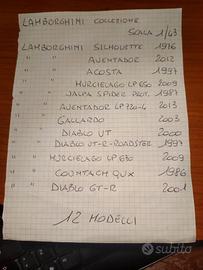 LAMBORGHINI COLLEZIONE
SCALA 1/43
LAMBORGHINI SILHOUETTE 1976
" " AVENTADOR 2012
" " ACOSTA 1997
" " MURCIELAGO LP 650 2009
" " JALPA SPIDER PROT. 1987
" " AVENTADOR LP720-4 2013
" " GALLARDO 2003
" " DIABLO VT 2000
" " DIABLO VT-R-ROADSTER 1997
" " MURCIELAGO LP 650 2009
" " COUNTACH QVX 1986
" " DIABLO GT-R 2001
12 MODELLI
subito